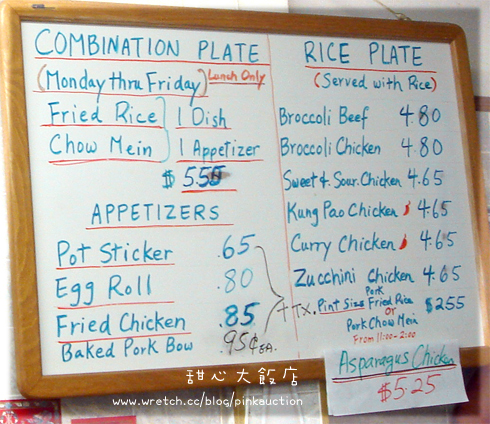 COMBINATION PLATE
(Monday thru Friday) Lunch Only
Fried Rice 1 Dish
Chow Mein 1 Appetizer
$ 5.55
APPETIZERS
Pot Sticker .65
Egg Roll .80
Fried Chicken .85
Baked Pork Bow .95¢ EA.
+ TX.
RICE PLATE
(Served with Rice)
Broccoli Beef 4.80
Broccoli Chicken 4.80
Sweet & Sour Chicken 4.65
Kung Pao Chicken 4.65
Curry Chicken 4.65
Zucchini Chicken 4.65
Pint Size Pork Fried Rice $2.55
or
Pork Chow Mein
From 11:00-2:00
Asparagus Chicken
$5.25
甜心大飯店
www.wretch.cc/blog/pinkauction